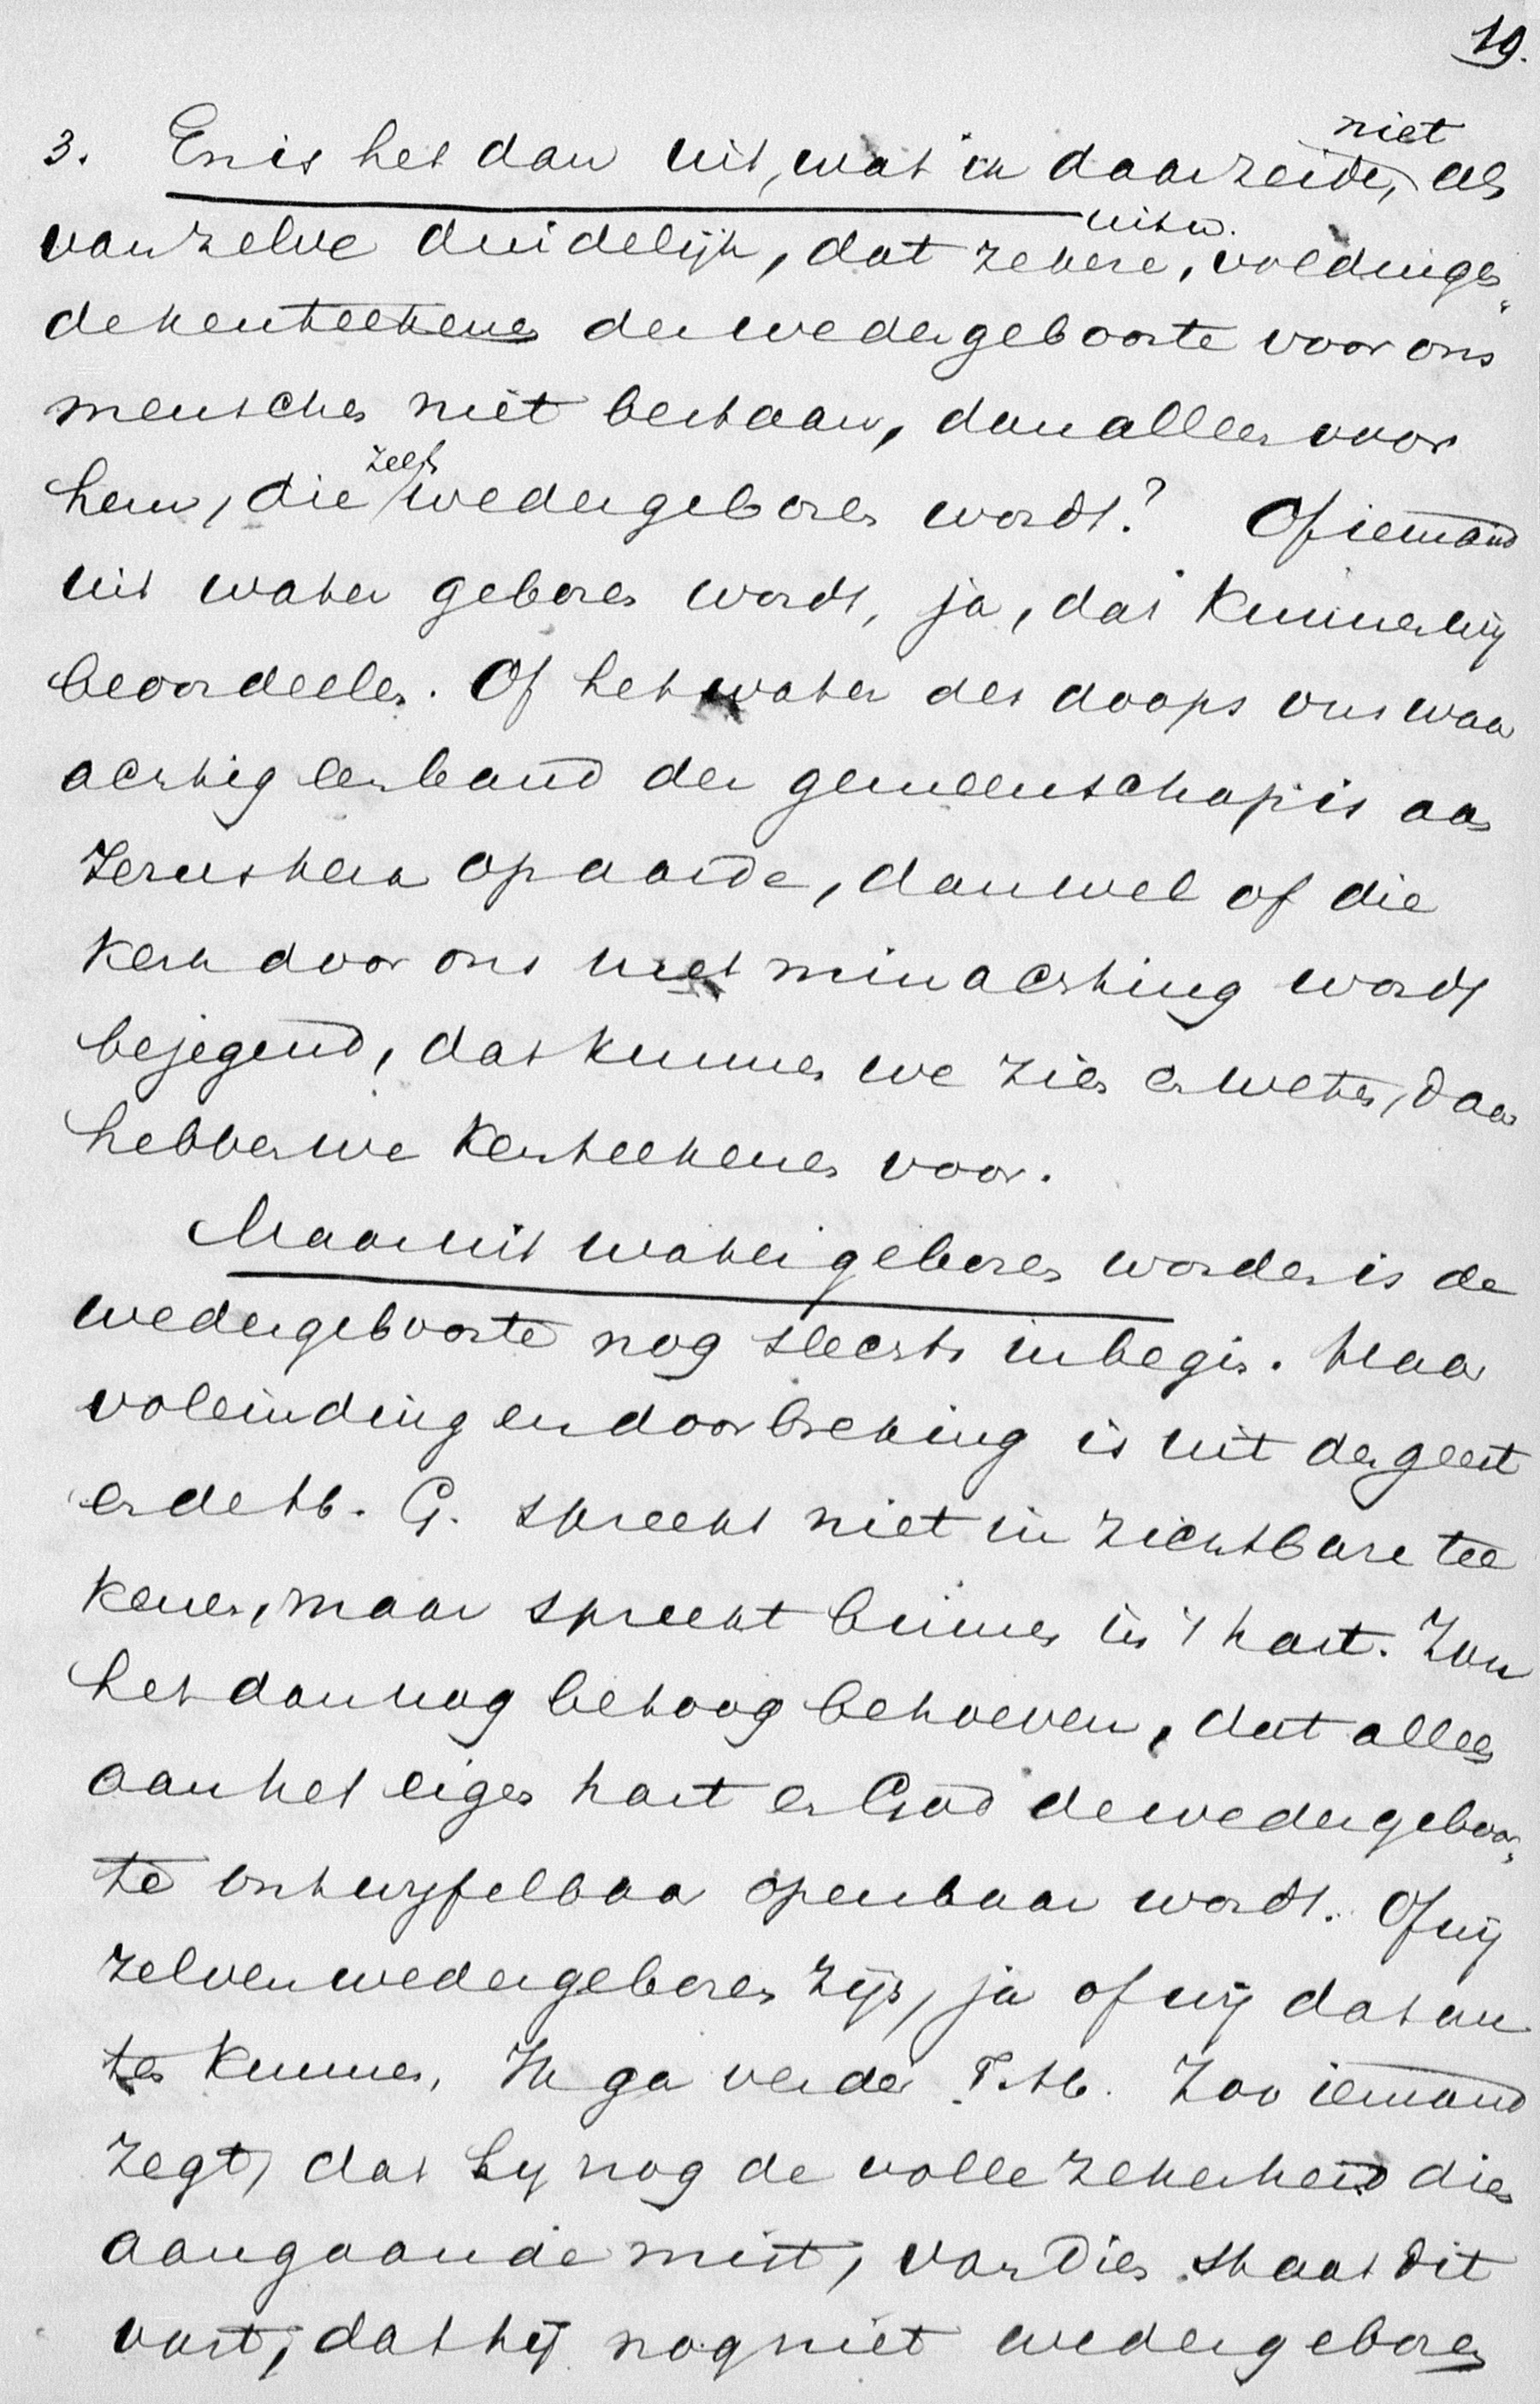 19.
niet
3. En is het dan uit, wat ik daar zeide, als
uitw.
van zelve duidelijk, dat zekere, voldingen-
de kenteekenen der wedergeboorte voor ons
menschen niet bestaan, dan alleen voor
zelf
hem, die wedergeboren wordt? Of iemand
uit water geboren wordt, ja, dat kunnen wij
beoordeelen. Of het water des doops ons waar
achtig een band der gemeenschap is aan
Jezus kerk op aarde, dan wel of die
kerk door ons met minachting wordt
bejegend, dat kunnen we zien en weten, daar
hebben we kenteekenen voor.
Maar uit water geboren worden is de
wedergeboorte nog slechts in begin. Haar
voleinding en doorbreking is uit den geest
en de H. G. spreekt niet in zichtbare tee
kenen, maar spreekt binnen in 't hart. Zou
het dan nog betoog behoeven, dat alleen
aan het eigen hart en God de wedergeboor-
te ontwijfelbaar openbaar wordt. Of wij
zelven wedergeboren zijn, ja of wij dat we
ten kunnen, Ik ga verder T. H. Zoo iemand
zegt, dat hij nog de volle zekerheid dien
aangaande mist, van dien staat dit
vast, dat hij nog niet wedergeboren